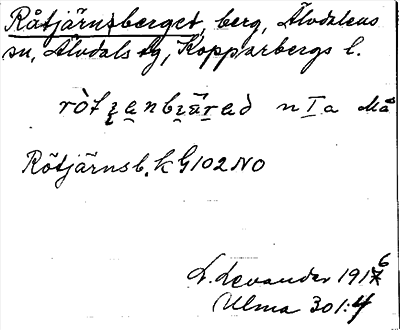 Råtjärnsberget, berg, Älvdalens
sn, Älvdals tg, Kopparbergs l.
n I a Må
Rötjärnsb. k G102NO
L. Levander 1916
Ulma 301:4